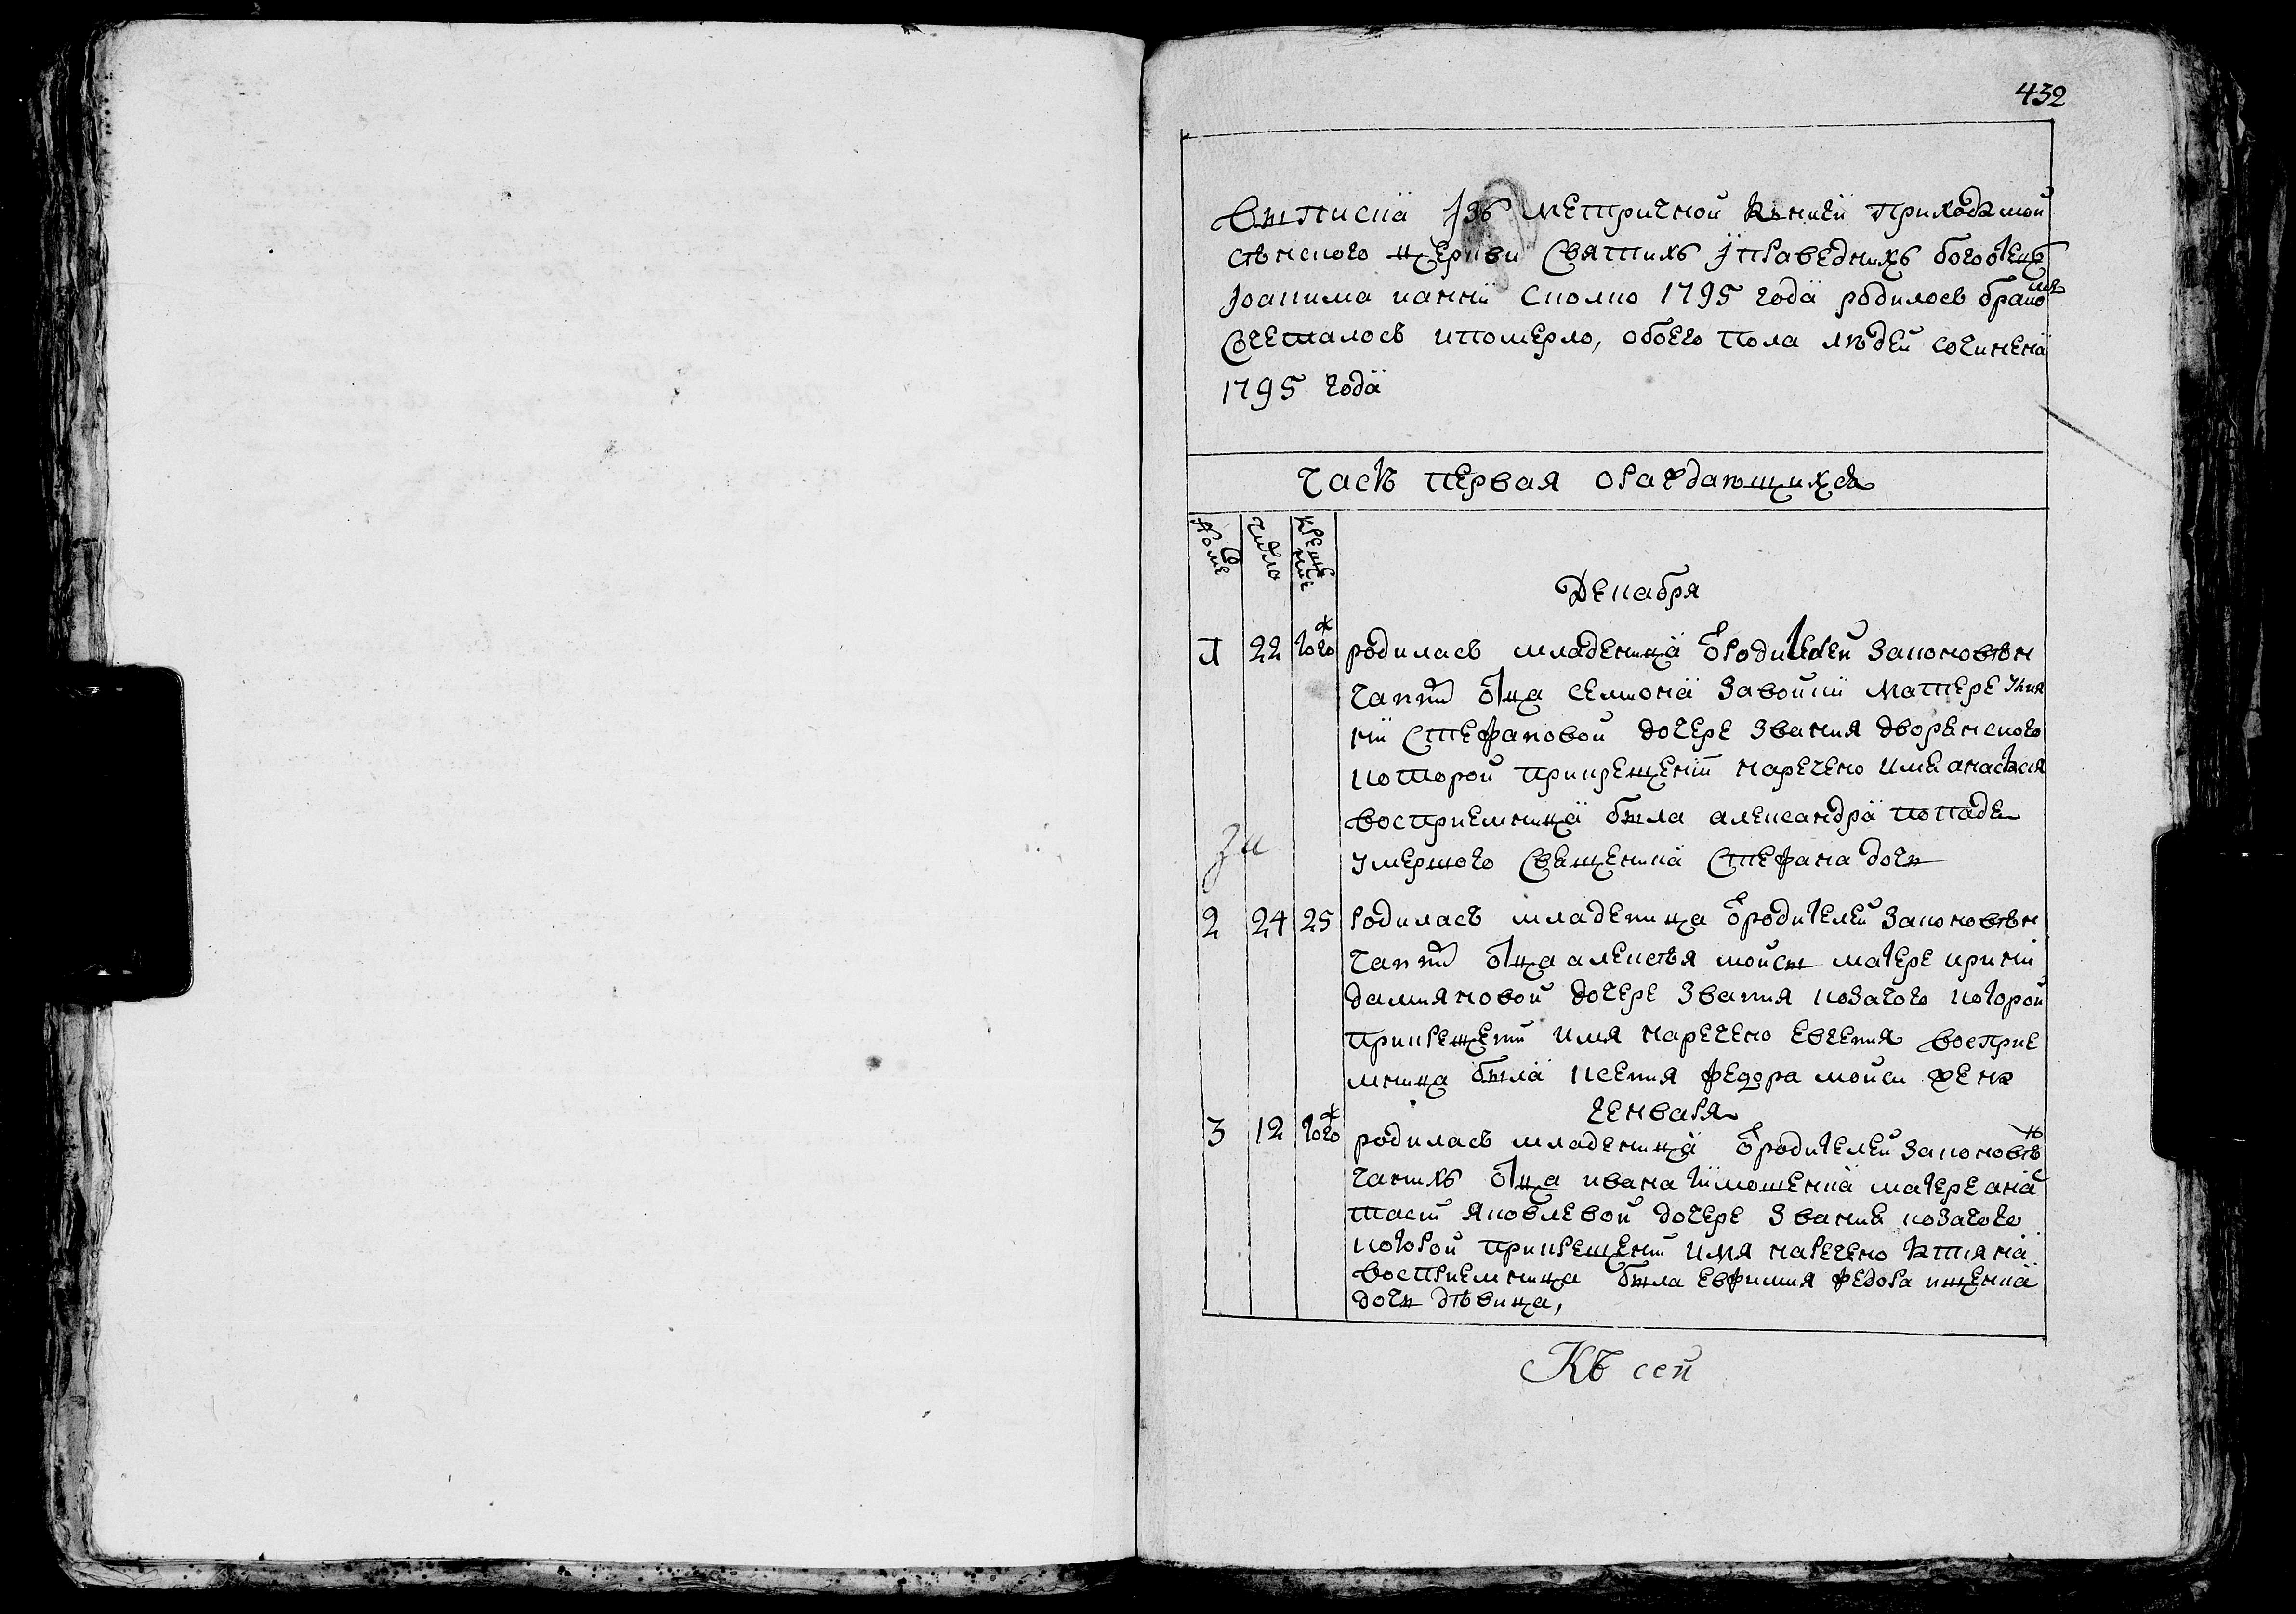 432
Выписка Изъ метричной книги прихода мой
сѣнского церкви Святихъ Iправеднихъ богоотець
Iоакима ианни сколко 1795 года родилось бракомъ
Сочеталось ипомерло, обоего пола людей сочинена
1795 года
Часть первая ораждающихся
числа крещение
Декабря
1 22 тогож родилась младеница ѿродителей законовѣн
чанни отца семиона матере
нии Стефановой дочере звания дворенского
которой прикрещении наречено имя анастасия
восприемница была александра попаде
умершого священника Стефана дочь
2 24 25 родилась младеница ѿродителей законовѣн
чанни отца алексѣя мойсы матере ирини
дамияновой дочере звания козачого которой
прикрещении имя наречено Евгения восприе
мница была ксения федора мойси жена
генваря
3 12 тогож родилась младеница ѿродителей законовѣн
чанихъ отца ивана тимошенка матере ана
стасии яковлевой дочере звания козачого
которой прикрещении имя наречено татияна
восприемница была евфимия федора
дочь дѣвица,
Къ сей